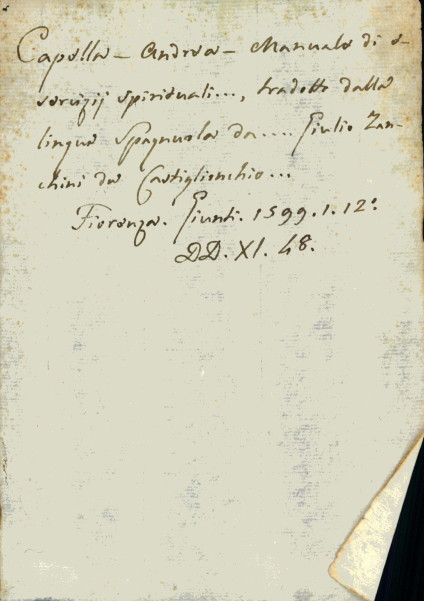 Capella – Andrea – Manuale di e-
sercizij spirituali..., tradotto dalla
lingua Spagnuola da .... Giulio Zan-
chini da Castiglionchio...
Fiorenza. Giunti. 1599. 1. 12°.
DD. XI. 48.